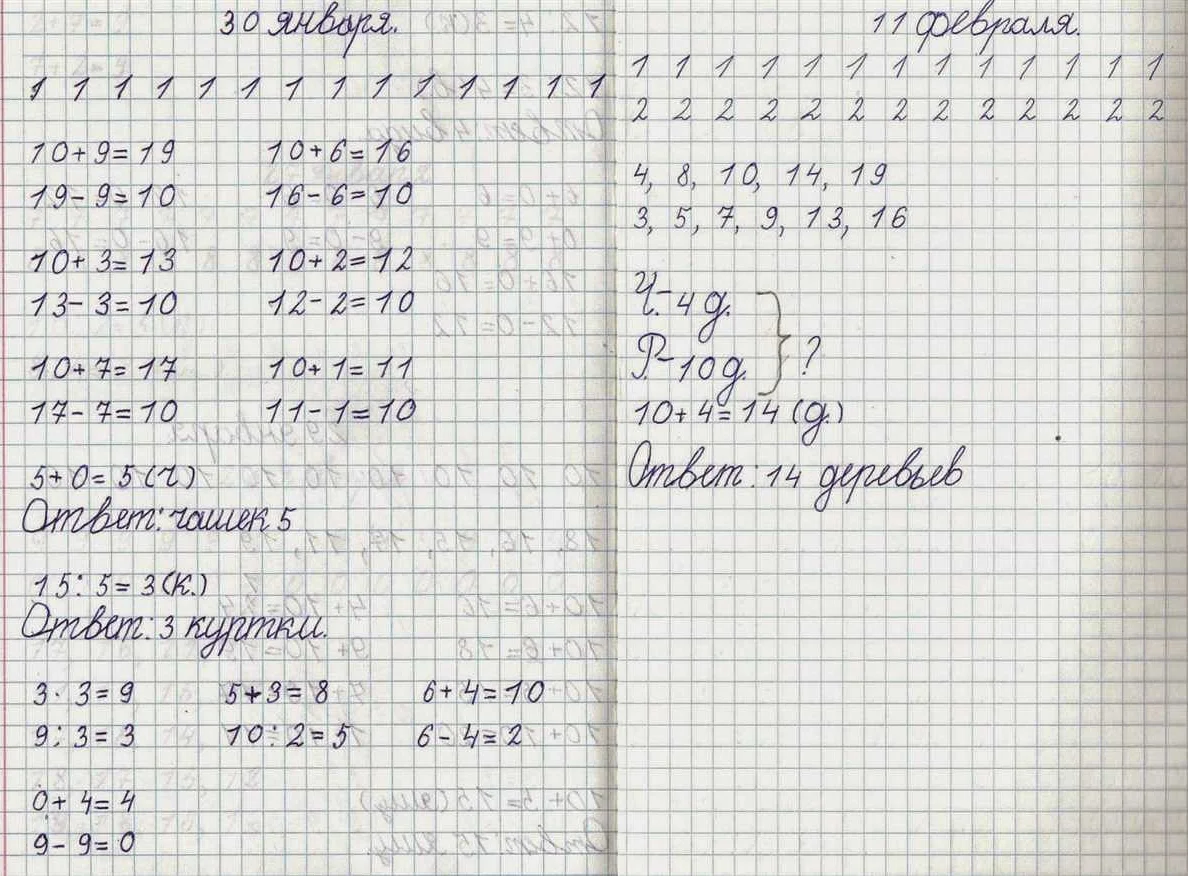 30 января.
1 1 1 1 1 1 1 1 1 1 1 1 1 1
10+9=19 10+6=16
19-9=10 16-6=10
10+3=13 10+2=12
13-3=10 12-2=10
10+7=17 10+1=11
17-7=10 11-1=10
5+0=5(ч)
Ответ: чашек 5
15:5=3(к.)
Ответ: 3 куртки.
3·3=9 5+3=8 6+4=10
9:3=3 10:2=5 6-4=2
0+4=4
9-9=0
11 февраля.
1 1 1 1 1 1 1 1 1 1 1 1 1
2 2 2 2 2 2 2 2 2 2 2 2 2
4, 8, 10, 14, 19
3, 5, 7, 9, 13, 16
Ч.-4 д.
Р.-10 д. } ?
10+4=14 (д.)
Ответ: 14 деревьев